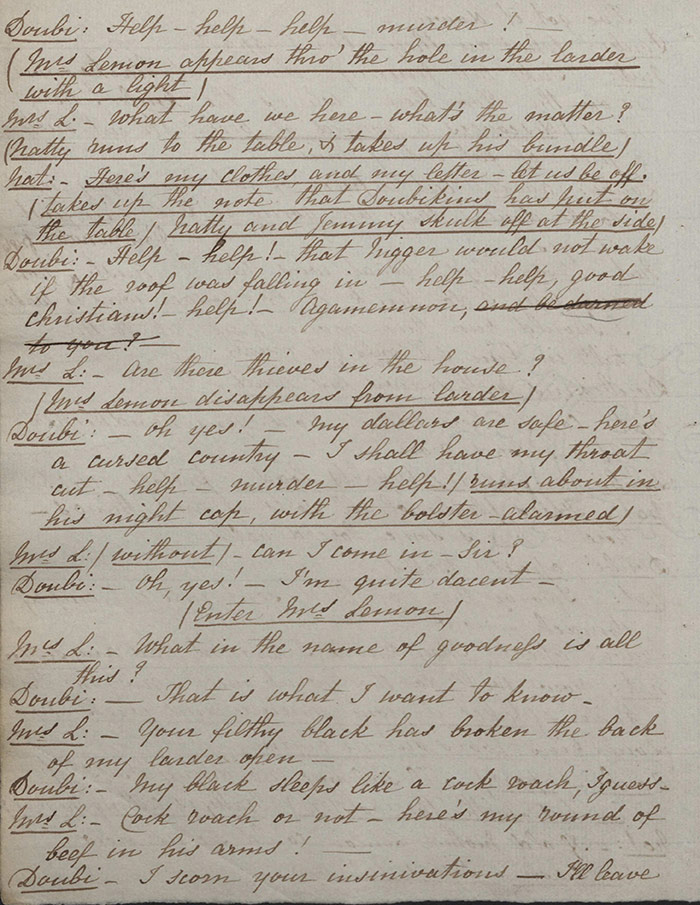 Doubi: Help - help - help - murder! -
(Mrs Lemon appears thro' the hole in the larder
with a light)
Mrs L. - What have we here - what's the matter?
(Natty runs to the table, & takes up his bundle)
Nat: - Here's my clothes, and my letter - let us be off.
(takes up the note that Doubikins has put on
the table) Natty and Jemmy skulk off at the side)
Doubi: - Help - help! - that Nigger would not wake
if the roof was falling in - help - help, good
christians! - help! - Agamemnon, and be darned
to you? -
Mrs L: - Are there thieves in the house?
(Mrs Lemon disappears from larder)
Doubi: - Oh yes! - My dallars are safe - here's
a cursed country - I shall have my throat
cut - help - murder - help! (runs about in
his night cap, with the bolster - alarmed)
Mrs L: (without) - can I come in - Sir?
Doubi: - Oh, yes! - I'm quite dacent -
(Enter Mrs Lemon)
Mrs L: - What in the name of goodness is all
this?
Doubi: - That is what I want to know -
Mrs L: - Your filthy black has broken the back
of my larder open -
Doubi: - My black sleeps like a cock roach, I guess -
Mrs L: - Cock roach or not - here's my round of
beef in his arms! -
Doubi - I scorn your insinivations - I'll leave